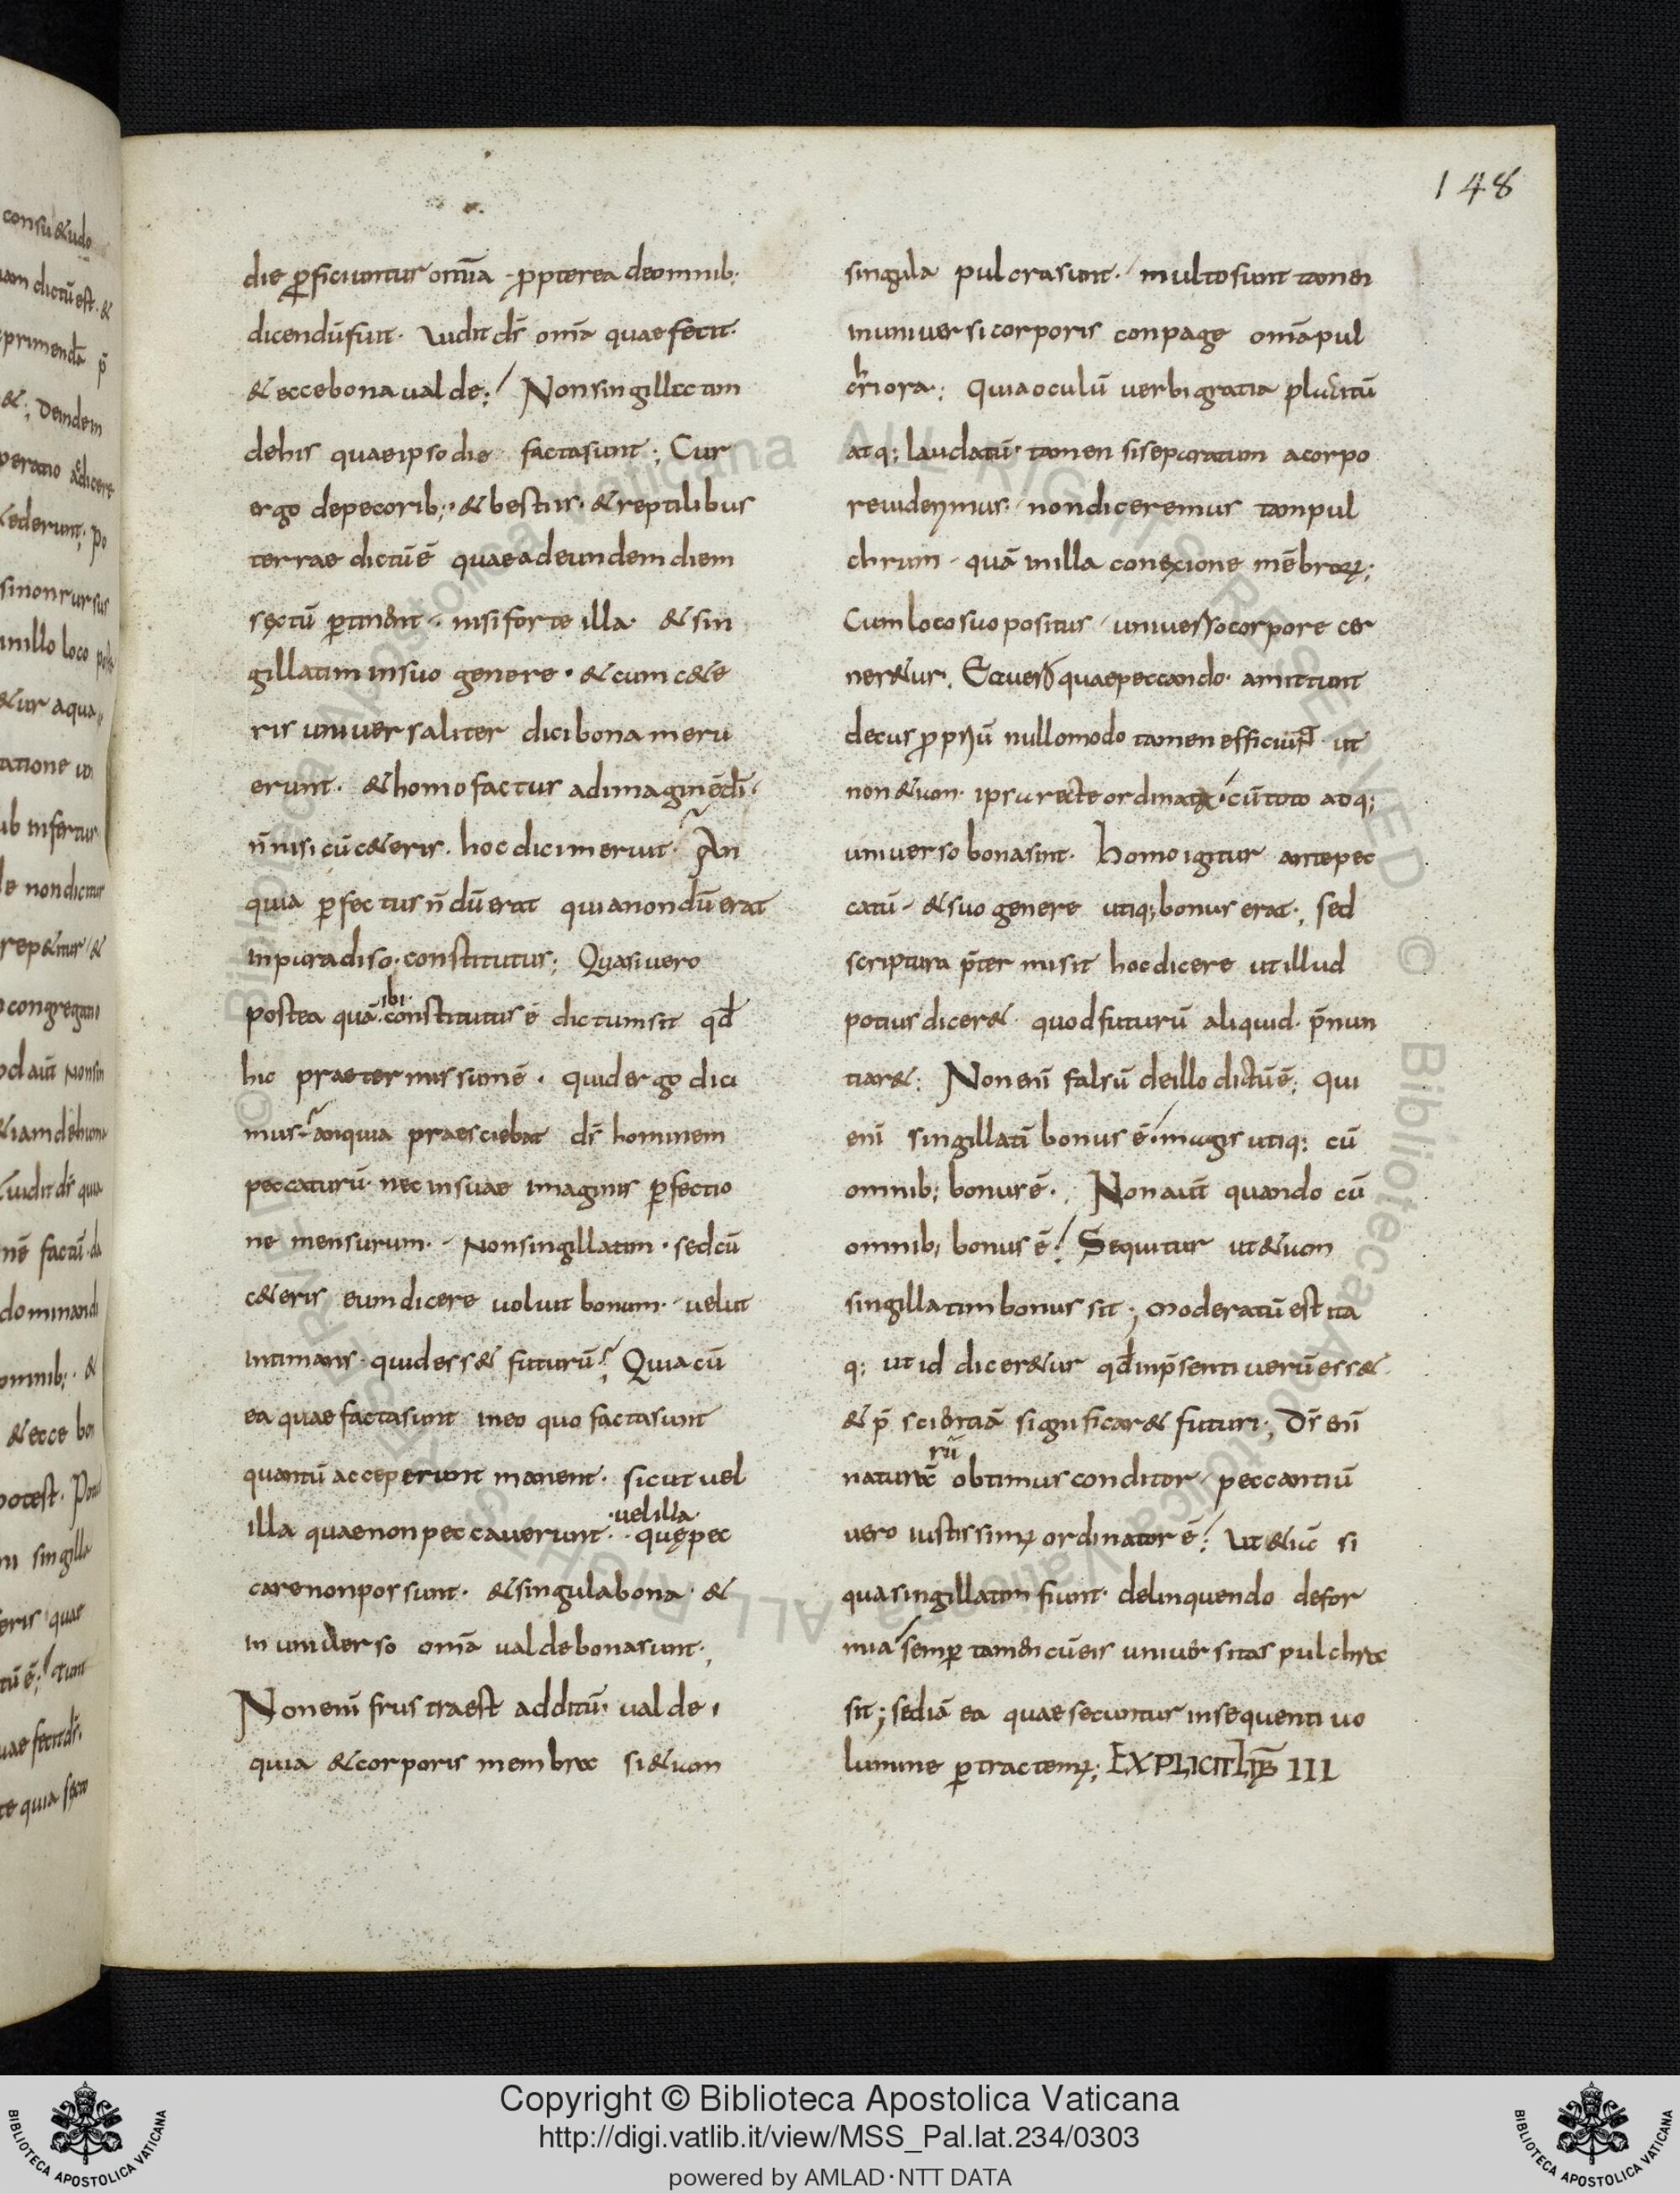 148
die ꝑficiuntur om̄ia · ꝓpterea deomnib;
dicendūfuit · Uidit dr̄ om̄a quaefecit ·
& eccebonaualde; Nonsingillatim
dehis quaeipsodie factasunt; Cur
ergo depecorib; · & bestiis · & reptilibus
terrae dictūē quaeadeundemdiem
sęctū ꝑtinent · nisiforte illa · & sin
gillatim insuo genere · & cum c&e
ris uniuersaliter dicibonameru
erunt · & homofactus adimaginēdī ·
n̄nisi cū c&eris · hocdicimeruit · An
quia ꝑfectus n̄ dū erat quianondūerat
inparadiso · constitutus; Quasiuero
postea quā ibi constitutus ē dictumsit qđ
hic praetermissumē · quidergo dici
mus · anquia praesciebat dr̄ hominem
peccaturū · nec insuae imaginis ꝑfectio
ne mensurum · Nonsingillatim · sedcū
c&eris eumdicere uoluit bonum · uelut
intimans · quidess& futurū; Quiacū
ea quaefactasunt ineo quo factasunt
quantū acceperunt manent · sicut uel
illa quaenonpeccauerunt · uelilla quępec
carenonpossunt · & singulabona · &
inuniuerso om̄a ualdebonasunt;
Nonenī frustraest additū · ualde ·
quia & corporis membra si&iam
singula pulcrasunt · multosunt tamen
inuniuersi corporis conpage om̄apul
chriora; Quiaoculū uerbigratia placitū
atq; laudatū · tamen siseparatum acorpo
reuideremus · nondiceremus tampul
chrum · quā inilla conexione mēbrorꝝ;
Cumlocosuopositus uniuersocorpore cer
ner&ur · Eauero quaepeccando · amittunt
decus ꝓpriū nullomodo tamenefficiunt ut
non&iam · ipsarecteordinata · cūtoto atq;
uniuerso bonasint · Homoigitur antepec
catū · & suo genere utiq; bonus erat; sed
scriptura p̄termisit hocdicere ut illud
potius dicer& · quodfuturū aliquid · p̄nun
tiar&; Nonenī falsū deillo dictūē; qui
enī singillatī bonus ē · magis utiq; cū
omnib; bonus ē · Nonautē quando cū
omnib; bonus ē; Sequitur ut&iam
singillatimbonus sit; moderatū est ita
q; ut id dicer&ur qđinp̄senti uerūess&
& p̄scientiā significar& futuri; Dr̄ enī
naturarū obtimusconditor · peccantiū
uero iustissimꝰ ordinator ē; Ut &iā si
quasingillatim fiunt · delinquendo defor
mia semꝑ tamen cūeis uniuersitas pulchra
sit; sediā ea quaesecuntur insequenti uo
lumine ꝑtractemꝰ; EXPLICIT LIB̄ III
Copyright © Biblioteca Apostolica Vaticana
http://digi.vatlib.it/view/MSS_Pal.lat.234/0303
powered by AMLAD · NTT DATA
BIBLIOTECA APOSTOLICA VATICANA
BIBLIOTECA APOSTOLICA VATICANA